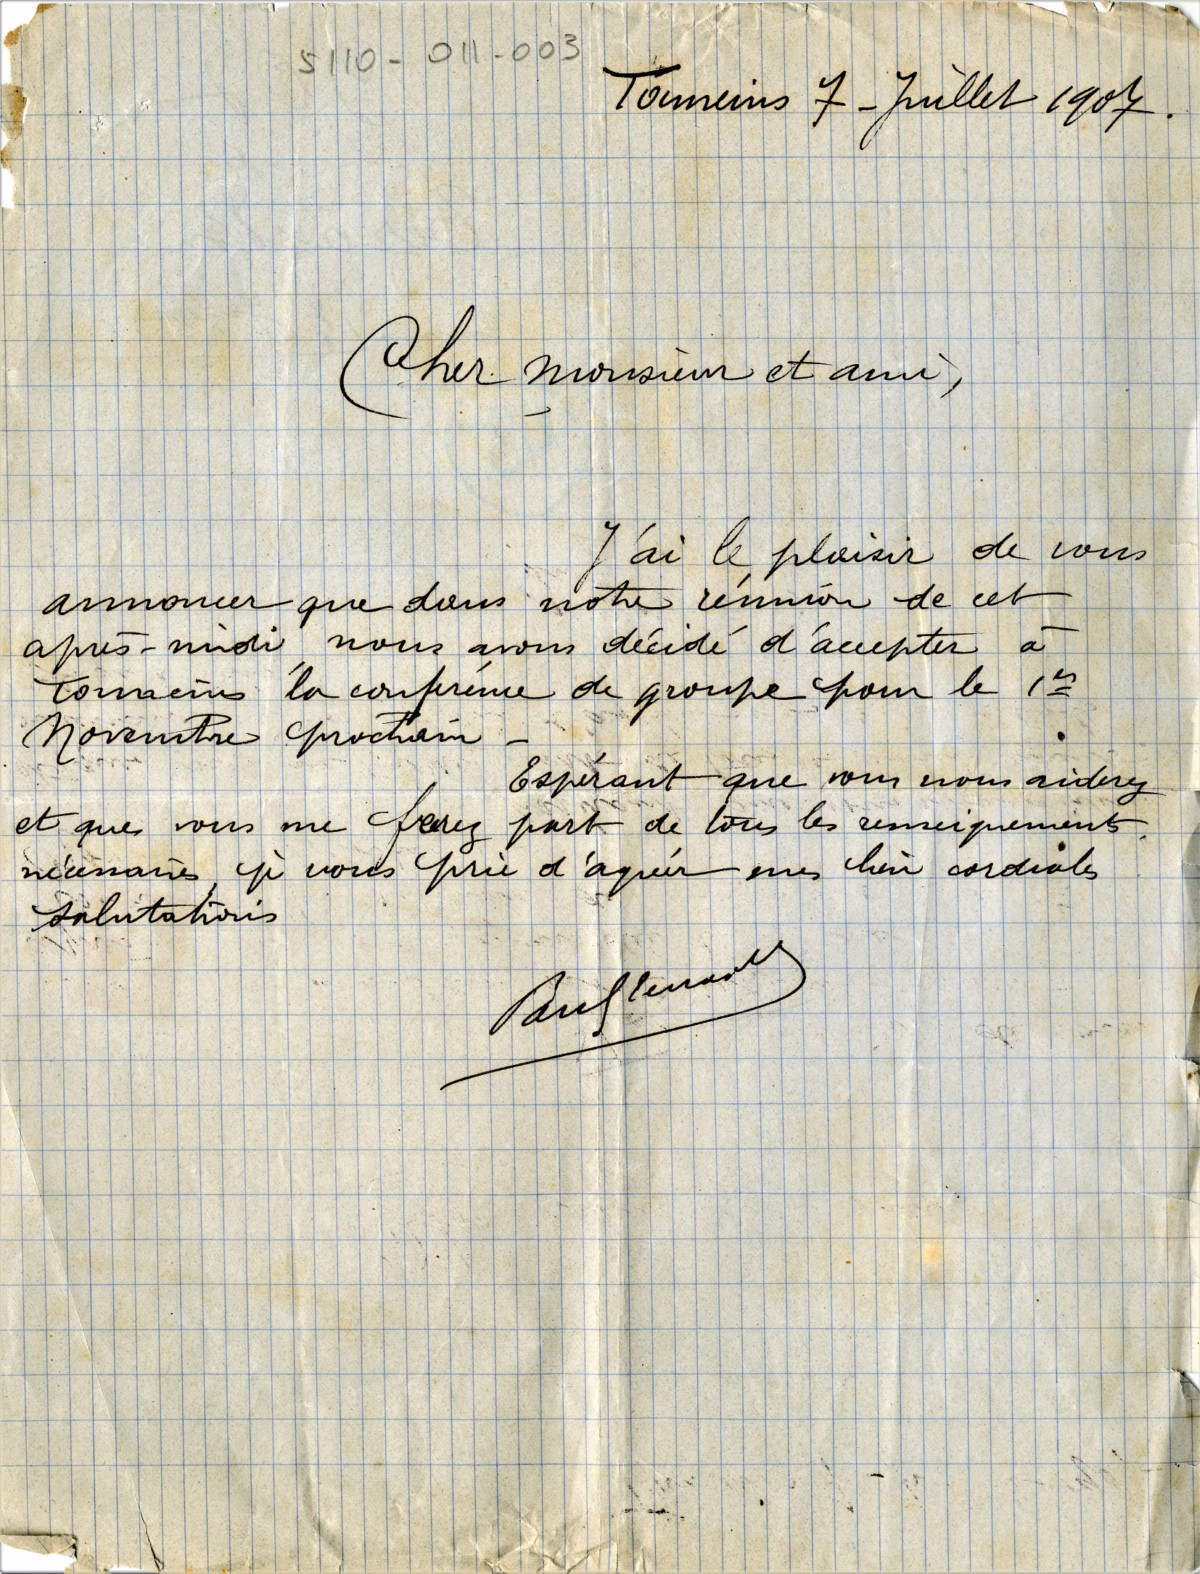 5110-011-003
Tonneins 7 - Juillet 1907.
Cher monsieur et ami,
J'ai le plaisir de vous
annoncer que dans notre réunion de cet
après-midi nous avons décidé d'accepter à
Tonneins la conférence de groupe pour le 1er
Novembre prochain -
Espérant que vous nous aiderez
et que vous me ferez part de tous les renseignements
nécessaires, je vous prie d'agréer mes bien cordiales
salutations
Paul